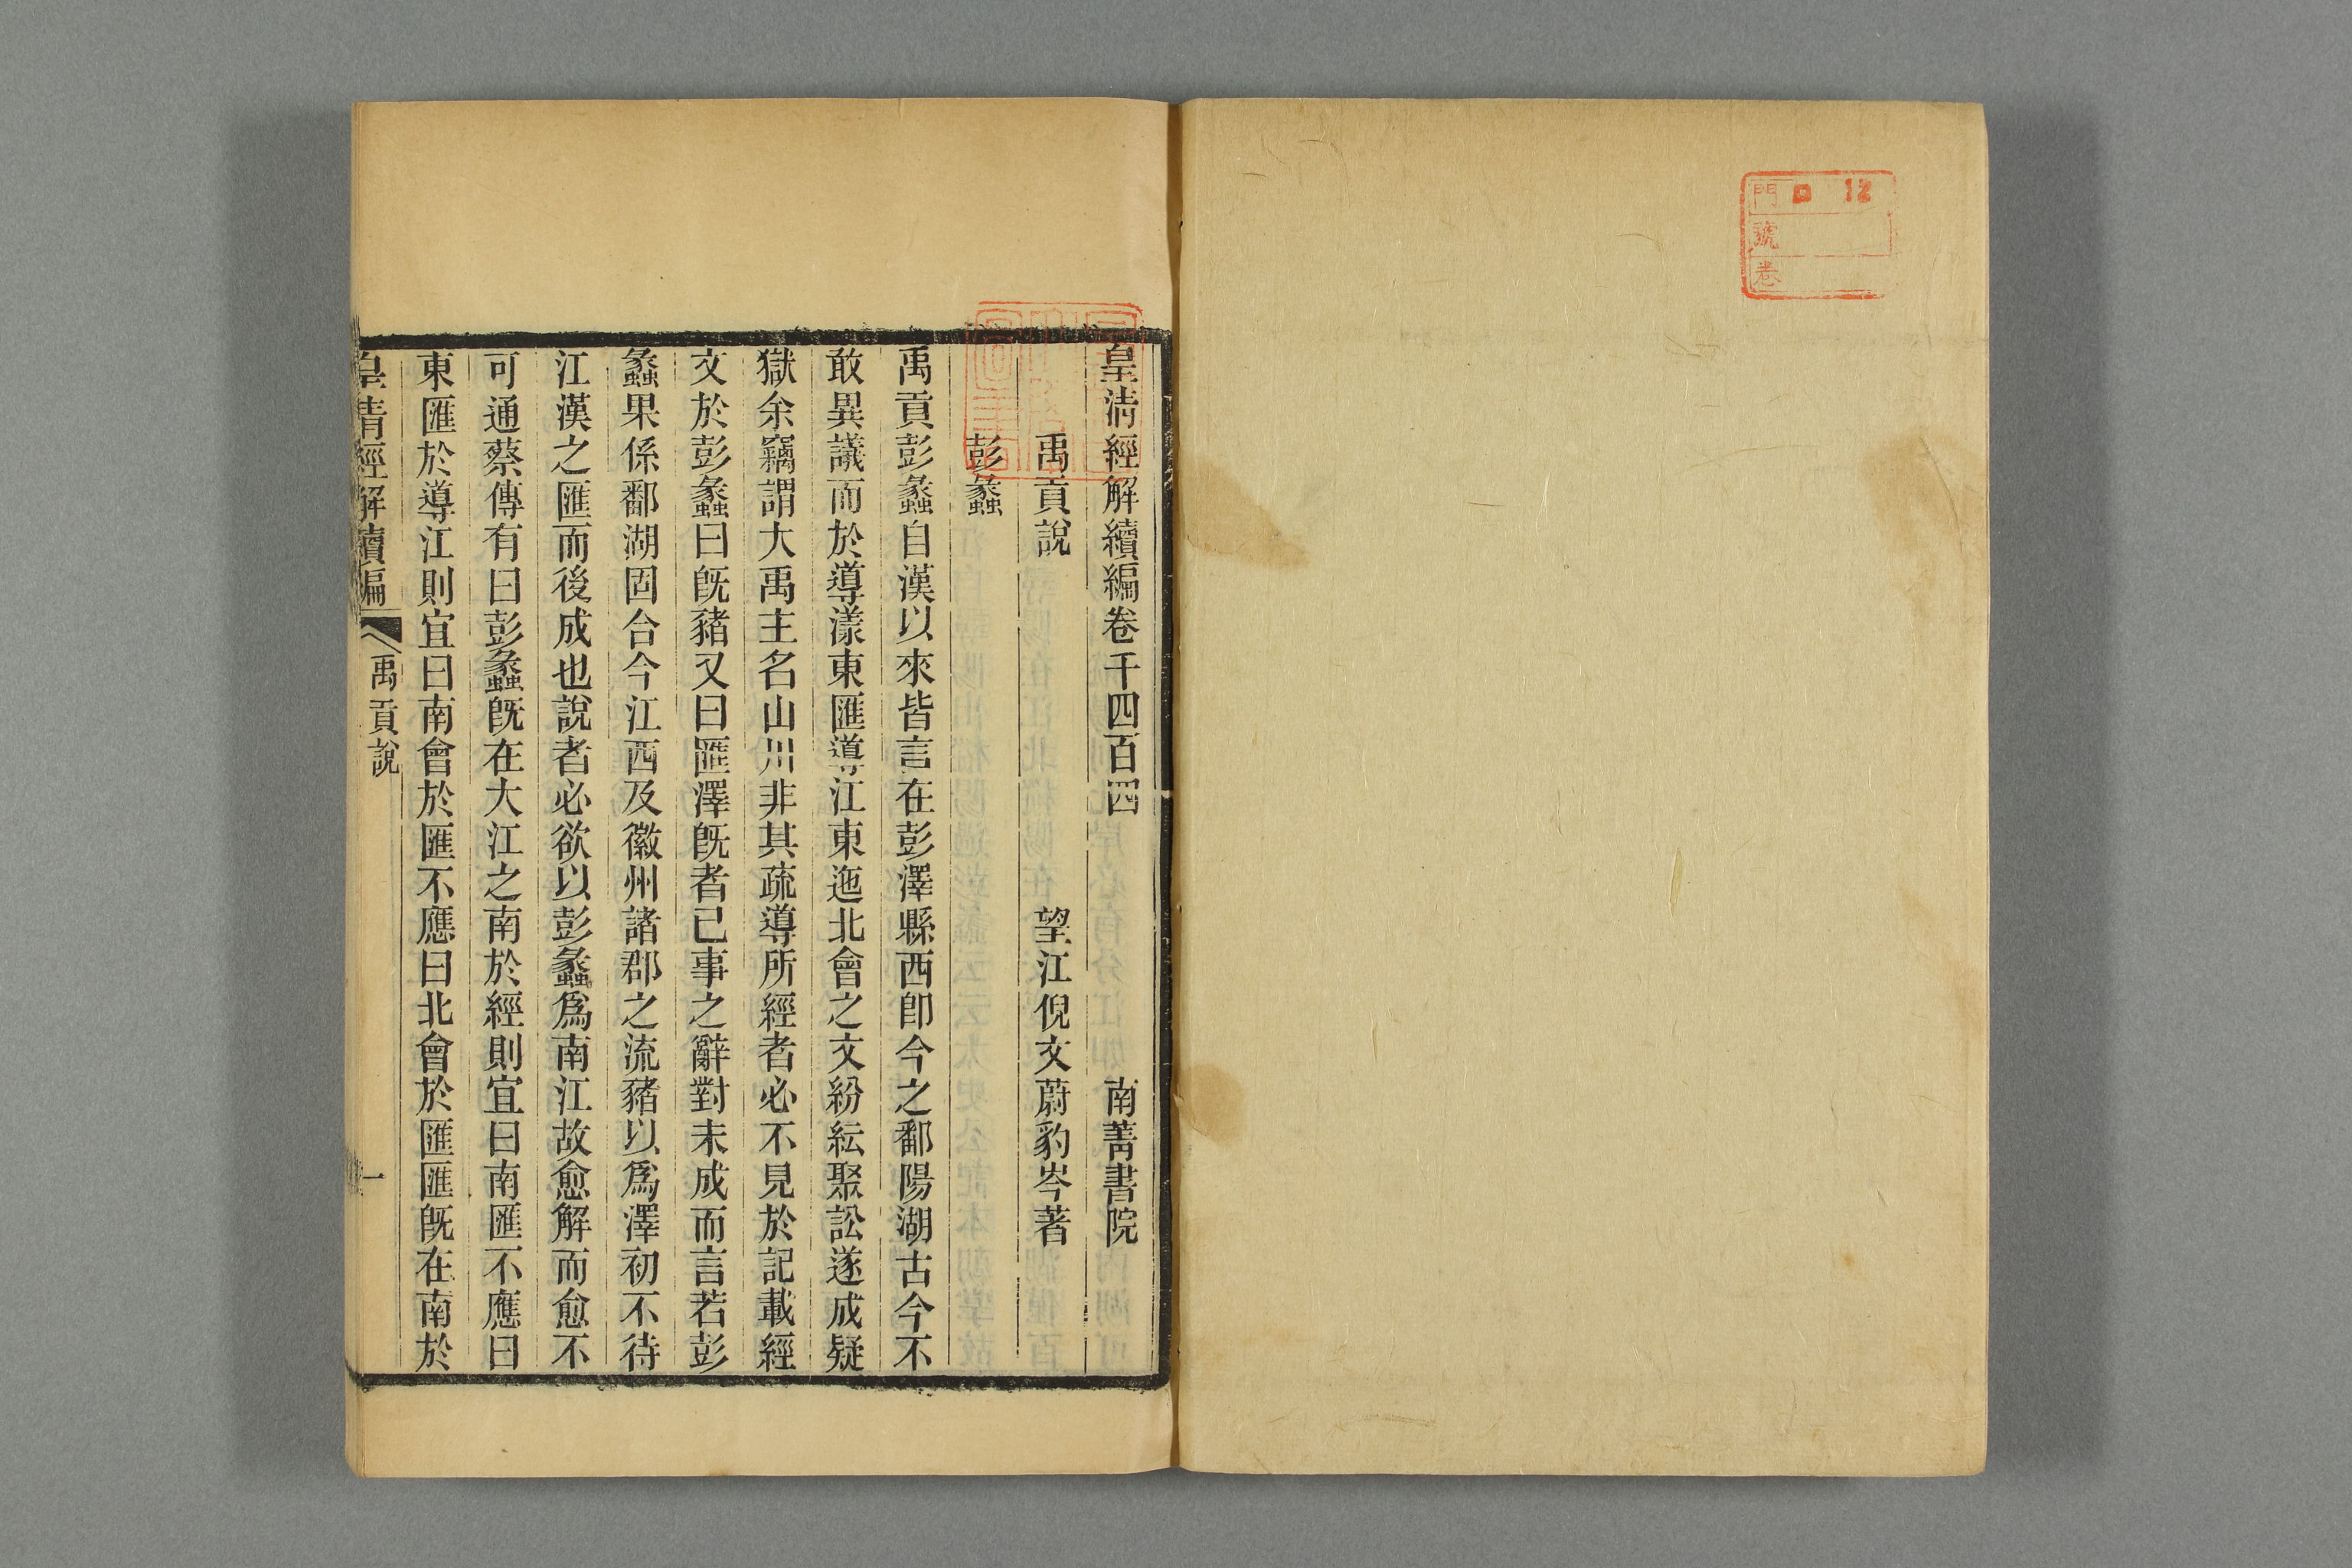 門 ロ 12
號
卷
皇淸經解續編卷千四百四 南菁書院
禹貢說 望江倪文蔚豹岑著
彭蠡
禹貢彭蠡自漢以來皆言在彭澤縣西卽今之鄱陽湖古今不
敢異議而於導漾東匯導江東迤北會之文紛紜聚訟遂成疑
獄余竊謂大禹主名山川非其疏導所經者必不見於記載經
文於彭蠡曰旣豬又曰匯澤旣者已事之辭對未成而言若彭
蠡果係鄱湖固合今江西及徽州諸郡之流豬以爲澤初不待
江漢之匯而後成也說者必欲以彭蠡爲南江故愈解而愈不
可通蔡傳有曰彭蠡旣在大江之南於經則宜曰南匯不應曰
東匯於導江則宜曰南會於匯不應曰北會於匯匯旣在南於
皇淸經解續編 禹貢說 一